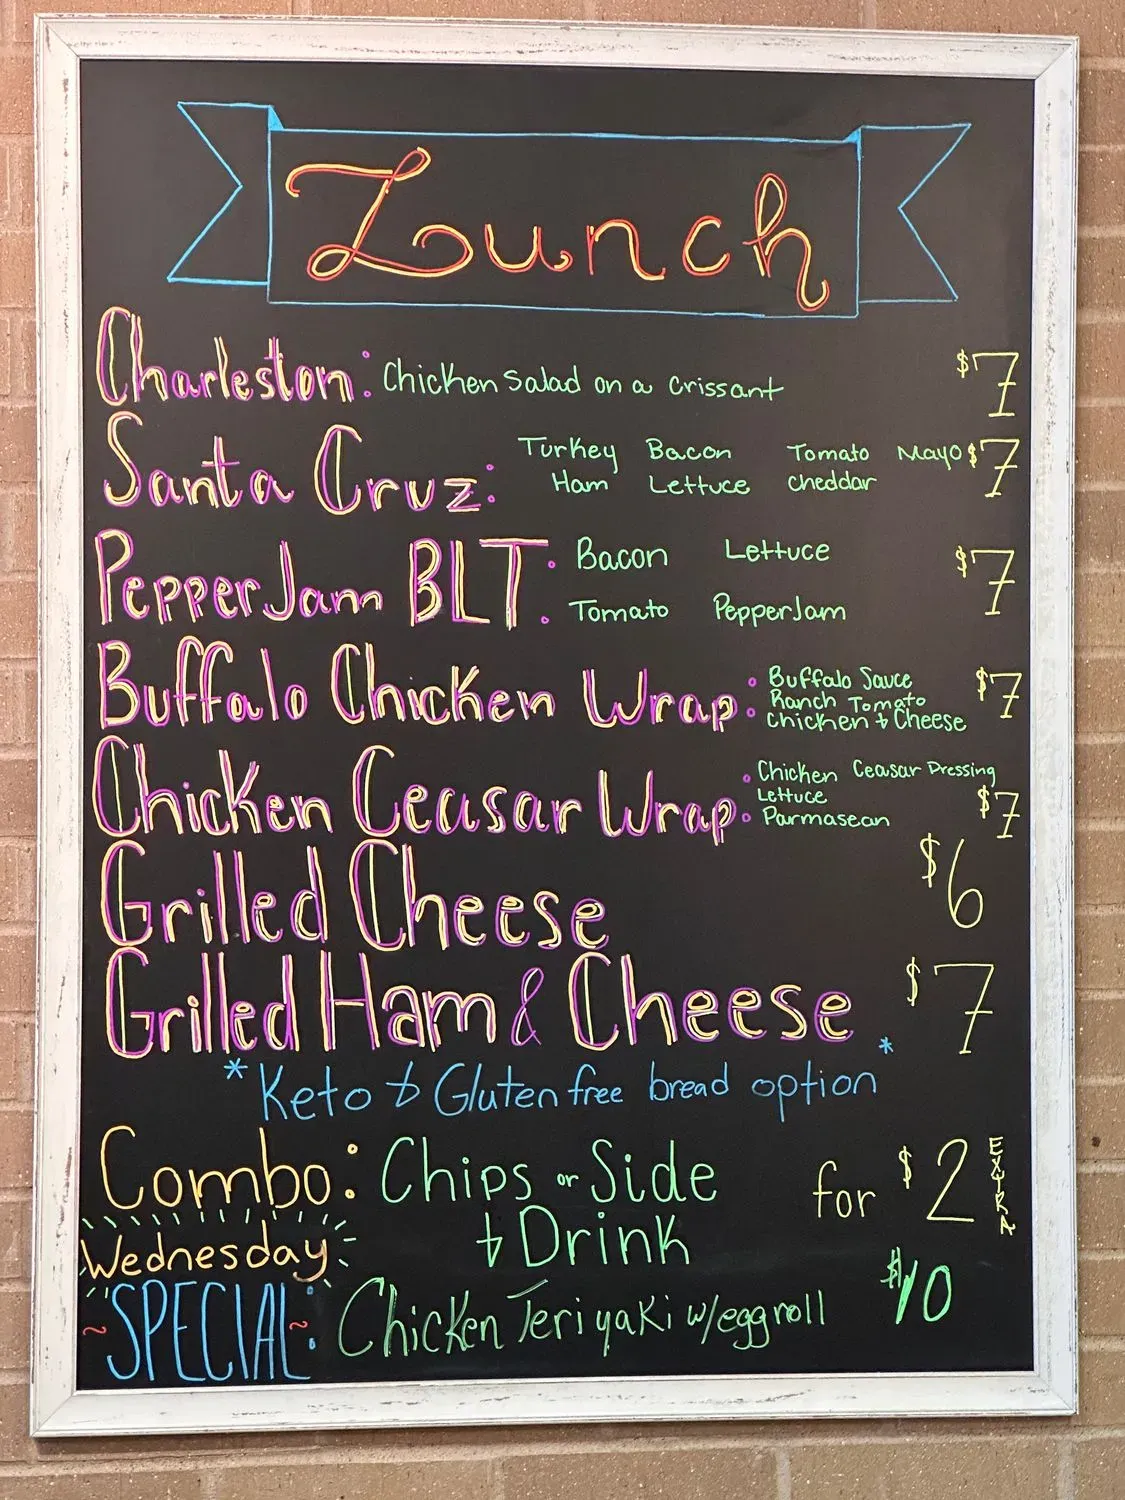 Lunch
Charleston: Chicken Salad on a Crissant $7
Santa Cruz: Turkey Bacon Tomato Mayo $7
Ham Lettuce Cheddar
PepperJam BLT: Bacon Lettuce $7
Tomato PepperJam
Buffalo Chicken Wrap: Buffalo Sauce $7
Ranch Tomato
Chicken & Cheese
Chicken Ceasar Wrap: Chicken Ceasar Dressing
Lettuce $7
Parmasean
Grilled Cheese $6
Grilled Ham & Cheese $7
*Keto & Gluten free bread option*
Combo: Chips or Side for $2 EXTRA
& Drink
Wednesday
~SPECIAL~: Chicken Teriyaki w/eggroll $10